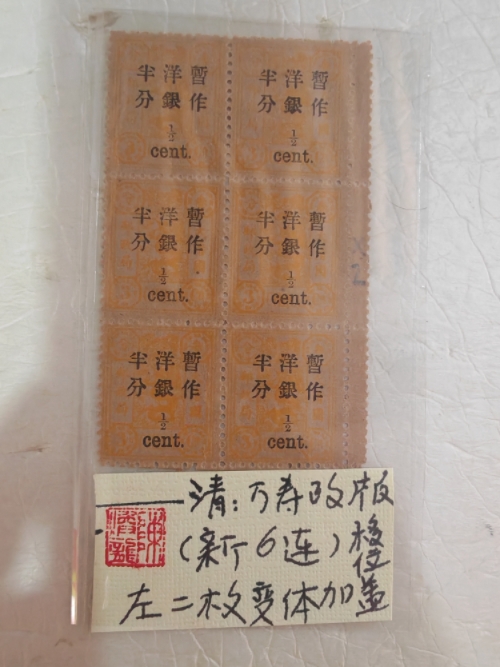 暫作
洋銀
半分
1/2
cent.
暫作
洋銀
半分
1/2
cent.
暫作
洋銀
半分
1/2
cent.
暫作
洋銀
半分
1/2
cent.
暫作
洋銀
半分
1/2
cent.
暫作
洋銀
半分
1/2
cent.
清:万寿改版
(新6连)移位
左二枚变体加盖